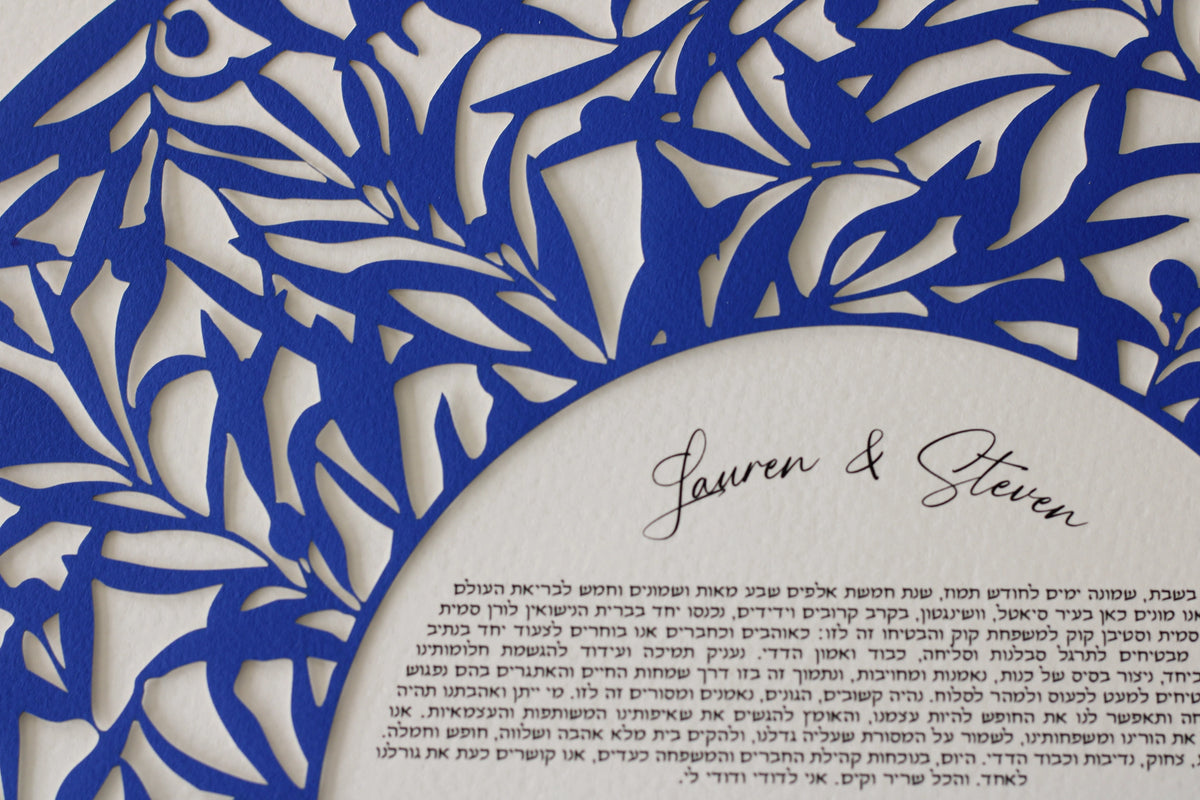 Lauren & Steven
בשבת, שמונה ימים לחודש תמוז, שנת חמשת אלפים שבע מאות ושמונים וחמש לבריאת העולם
אנו מונים כאן בעיר סיאטל, וושינגטון, בקרב קרובים וידידים, נכנסו יחד בברית הנישואין לורן סמית
סמית וסטיבן קוק למשפחת קוק והבטיחו זה לזו: כאוהבים וכחברים אנו בוחרים לצעוד יחד בנתיב
מבטיחים לתרגל סבלנות וסליחה, כבוד ואמון הדדי. נעניק תמיכה ועידוד להגשמת חלומותינו
ביחד, ניצור בסיס של כנות, נאמנות ומחויבות, ונתמוך זה בזו דרך שמחות החיים והאתגרים בהם נפגוש
למעט לכעוס ולמהר לסלוח. נהיה קשובים, הגונים, נאמנים ומסורים זה לזו. מי ייתן ואהבתנו תהיה
ותאפשר לנו את החופש להיות עצמנו, והאומץ להגשים את שאיפותינו המשותפות והעצמאיות. אנו
את הורינו ומשפחותינו, לשמור על המסורת שעליה גדלנו, ולהקים בית מלא אהבה ושלווה, חופש וחמלה.
צחוק, נדיבות וכבוד הדדי. היום, בנוכחות קהילת החברים והמשפחה כעדים, אנו קושרים כעת את גורלנו
לאחד. והכל שריר וקים. אני לדודי ודודי לי.